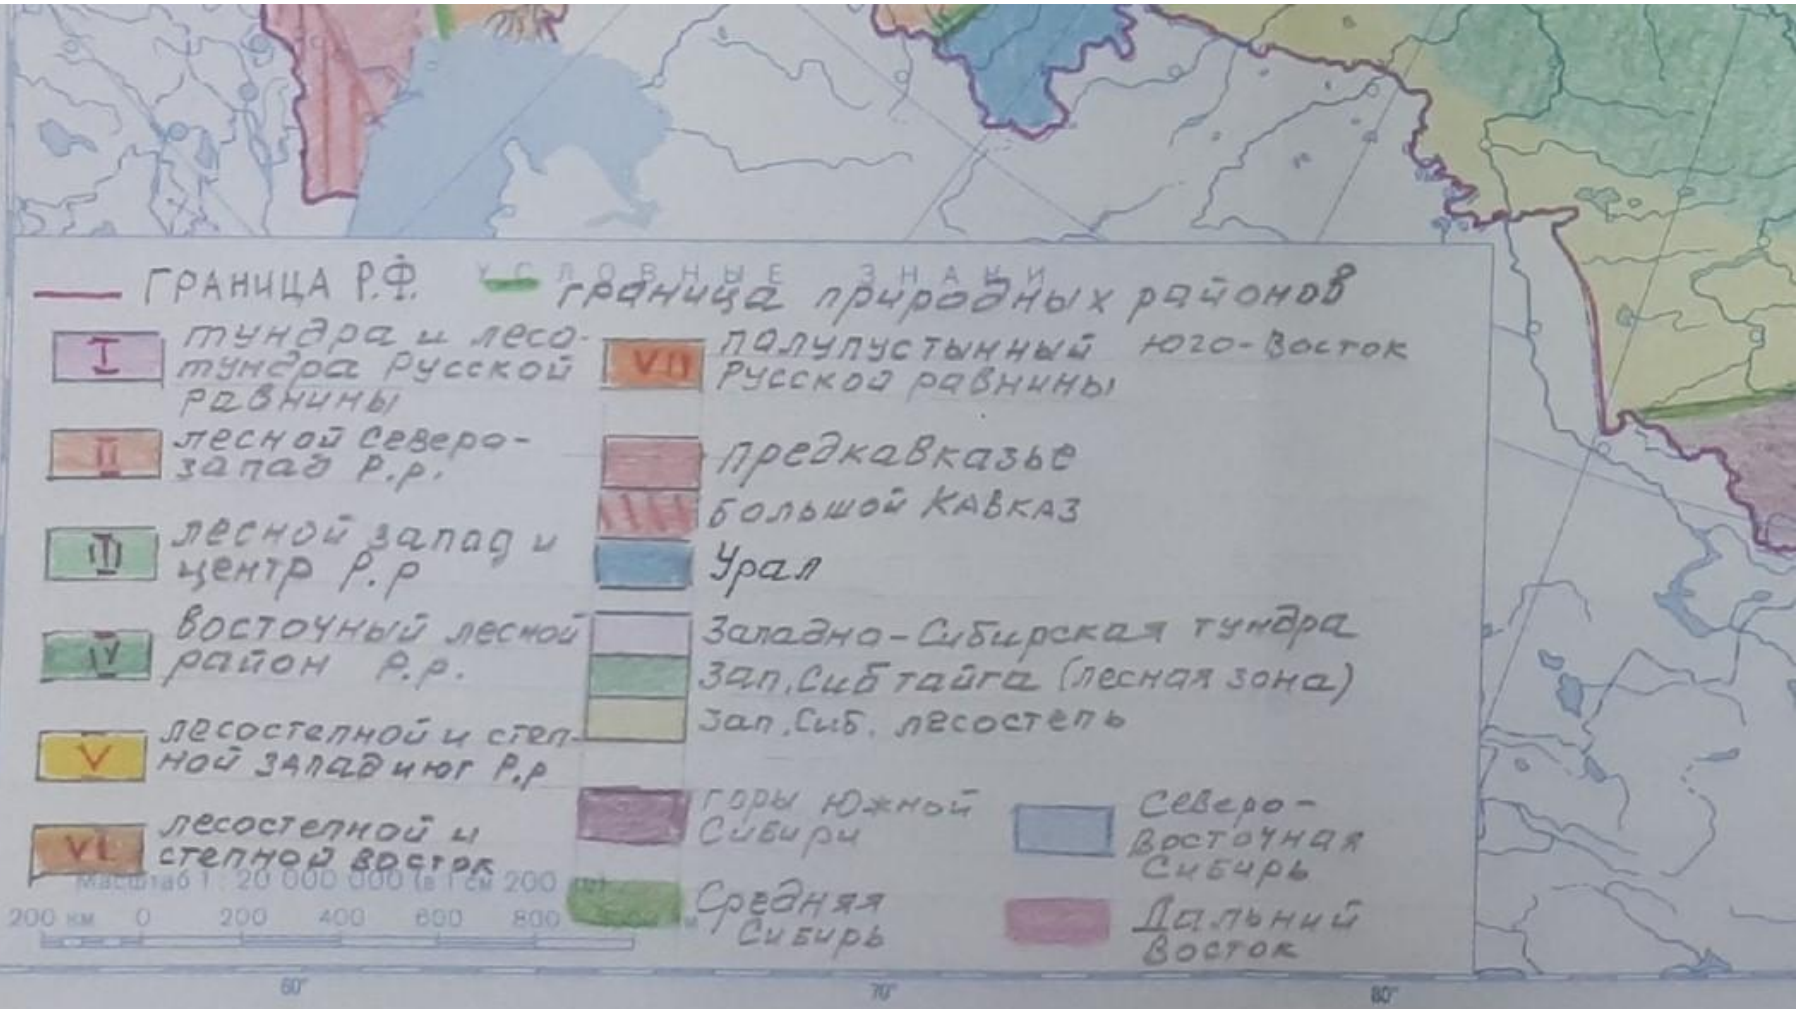 УСЛОВНЫЕ ЗНАКИ
ГРАНИЦА Р.Ф.
граница природных районов
I
тундра и лесо-
тундра Русской
равнины
II
лесной Северо-
запад Р.р.
III
лесной запад и
центр Р.р
IV
восточный лесной
район Р.р.
V
лесостепной и степ-
ной запад и юг Р.р
VI
лесостепной и
степной восток
VII
полупустынный юго-восток
Русской равнины
предкавказье
большой Кавказ
Урал
Западно-Сибирская тундра
Зап. Сиб тайга (лесная зона)
Зап. Сиб. лесостепь
горы Южной
Сибири
Средняя
Сибирь
Северо-
Восточная
Сибирь
Дальний
Восток
Масштаб 1 : 20 000 000 (в 1 см 200
200 км 0 200 400 600 800
60° 70° 80°